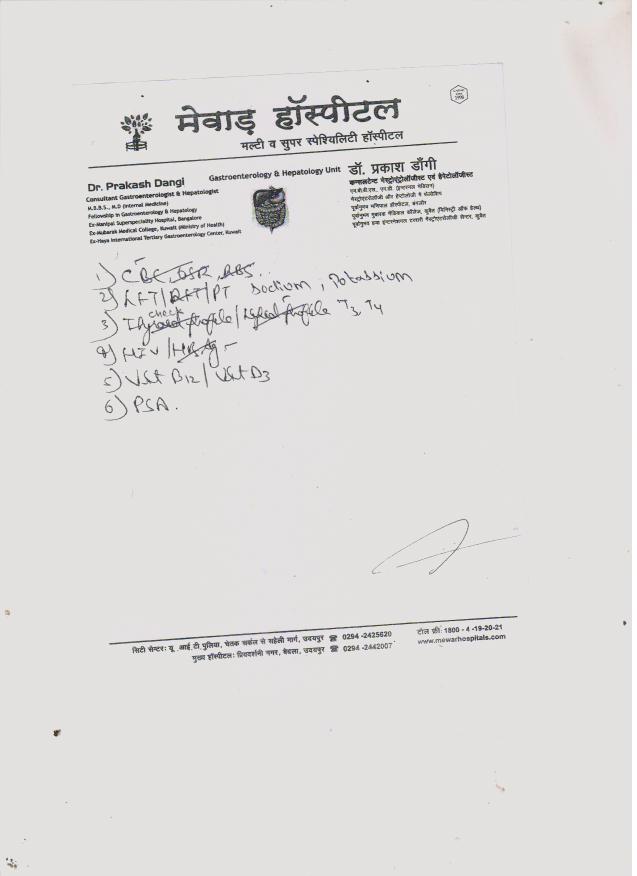 मेवाड़ हॉस्पीटल
मल्टी व सुपर स्पेश्यिलिटी हॉस्पीटल
Gastroenterology & Hepatology Unit
Dr. Prakash Dangi
Consultant Gastroenterologist & Hepatologist
M.B.B.S., M.D (Internal Medicine)
Fellowship in Gastroenterology & Hepatology
Ex-Manipal Superspeciality Hospital, Bangalore
Ex-Mubarak Medical College, Kuwait (Ministry of Health)
Ex-Haya International Tertiary Gastroenterology Center, Kuwait
डॉ. प्रकाश डाँगी
कन्सलटेन्ट गेस्ट्रोएंट्रोलॉजीस्ट एवं हेपेटोलॉजीस्ट
एम.बी.बी.एस., एम.डी. (इन्टरनल मेडिसिन)
1) CBC, ESR, RBS.
2) LFT/RFT/PT Sodium, Potassium
check
3) Thyroid profile/Lipid profile T3, T4
4) HIV/HBsAg
5) Vit B12/Vit D3
6) PSA.
सिटी सेन्टर: यू. आई.टी.पुलिया, चेतक सर्कल से सहेली मार्ग, उदयपुर ☎ 0294 -2425620
मुख्य हॉस्पीटल: प्रियदर्शनी नगर, बेदला, उदयपुर ☎ 0294 -2442007
टोल फ्री: 1800 - 4 -19-20-21
www.mewarhospitals.com